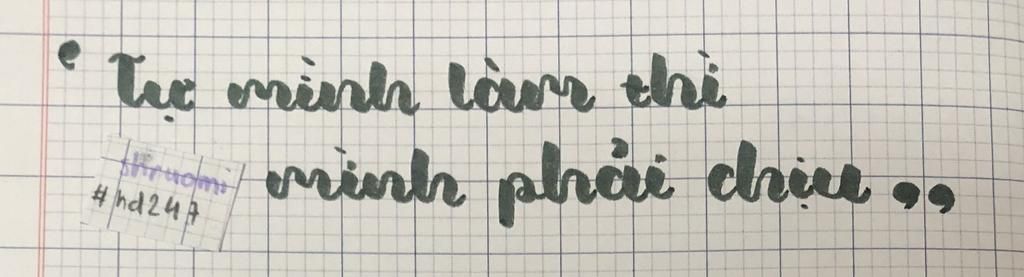 ‘ Tự mình làm thì
mình phải chịu ,,
shruomi
#hd247